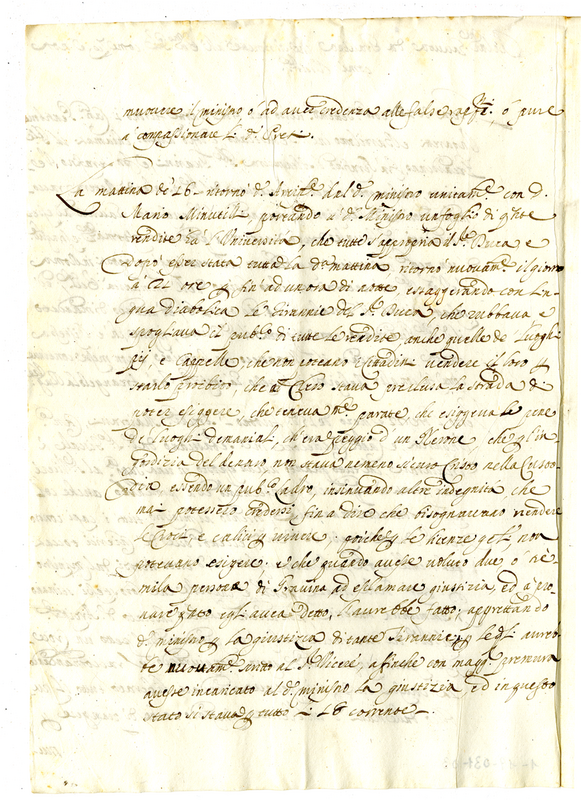 muovere il ministro ó ad avere credenza alle false rag.ni, ó pure
a compassionare li di Preti.
La mattina de 16 ritornó d. Arcip.e dal d.o ministro unicam.te con d.
Mario Minutilli, portando a d.o Ministro un foglio di q.nte
rendite há l'Università, che tutte s'appropria il S.r Duca e
Dopò esser stata tutta la d.a mattina ritornó nuovam.te il giorno
a 21 ore e fin ad un ora di notte esaggerando con lin
gua diabolica le tirannie del S.r Duca, che rubbava e
spogliava il pub.o di tutte le rendite, anche quelle de Luoghi
pij, e Cappelle, che non poteano Cittadini vendere il loro
starlo proibito, che al Clero stava preclusa la strada di
poter esiggere, che teneva parate, che esiggeva le pene
de luoghi demaniali, ch'era peggio d'un Nerone che gl'in
gordizia del denaro, non stava nemeno sicuro Cristo nella Custo
dia essendo un pub.o ladro, insinuando altre indegnità che
mai potessero credersi, fin a dire che bisognavano vendere
le Croci, e calici p vivere, poiche p le licenze non
potevano esigere, e che quando avesse voluto due ó tre
mila persone di Gravina ad esclamare giustizia, ed a pro
vare q.nto egli avea detto, l'avrebbe fatto, apprettando
d.o ministro p la giustizia di tante Tirannie, egli avreb
be nuovam.te scritto al S. Viceré, affinche con magg.r premura
avesse incaricato al d.o ministro la giustizia, ed in questo
stato si stava p tutto li 16 corrente.